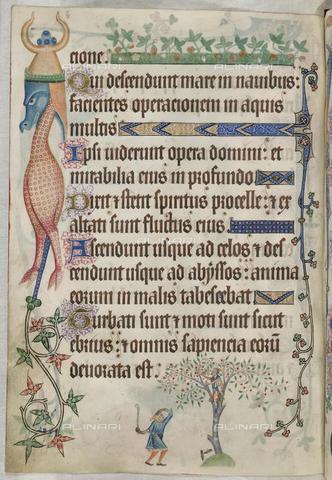 cione.
Qui descendunt mare in nauibus:
facientes operacionem in aquis
multis
Ipsi uiderunt opera domini: et
mirabilia eius in profundo
Dixit & stetit spiritus procelle: & ex
altati sunt fluctus eius
Ascendunt usque ad celos & des
cendunt usque ad abyssos: anima
eorum in malis tabescebat
Turbati sunt & moti sunt sicut
ebrius: & omnis sapiencia eorū
deuorata est.
ALINARI
ALINARI